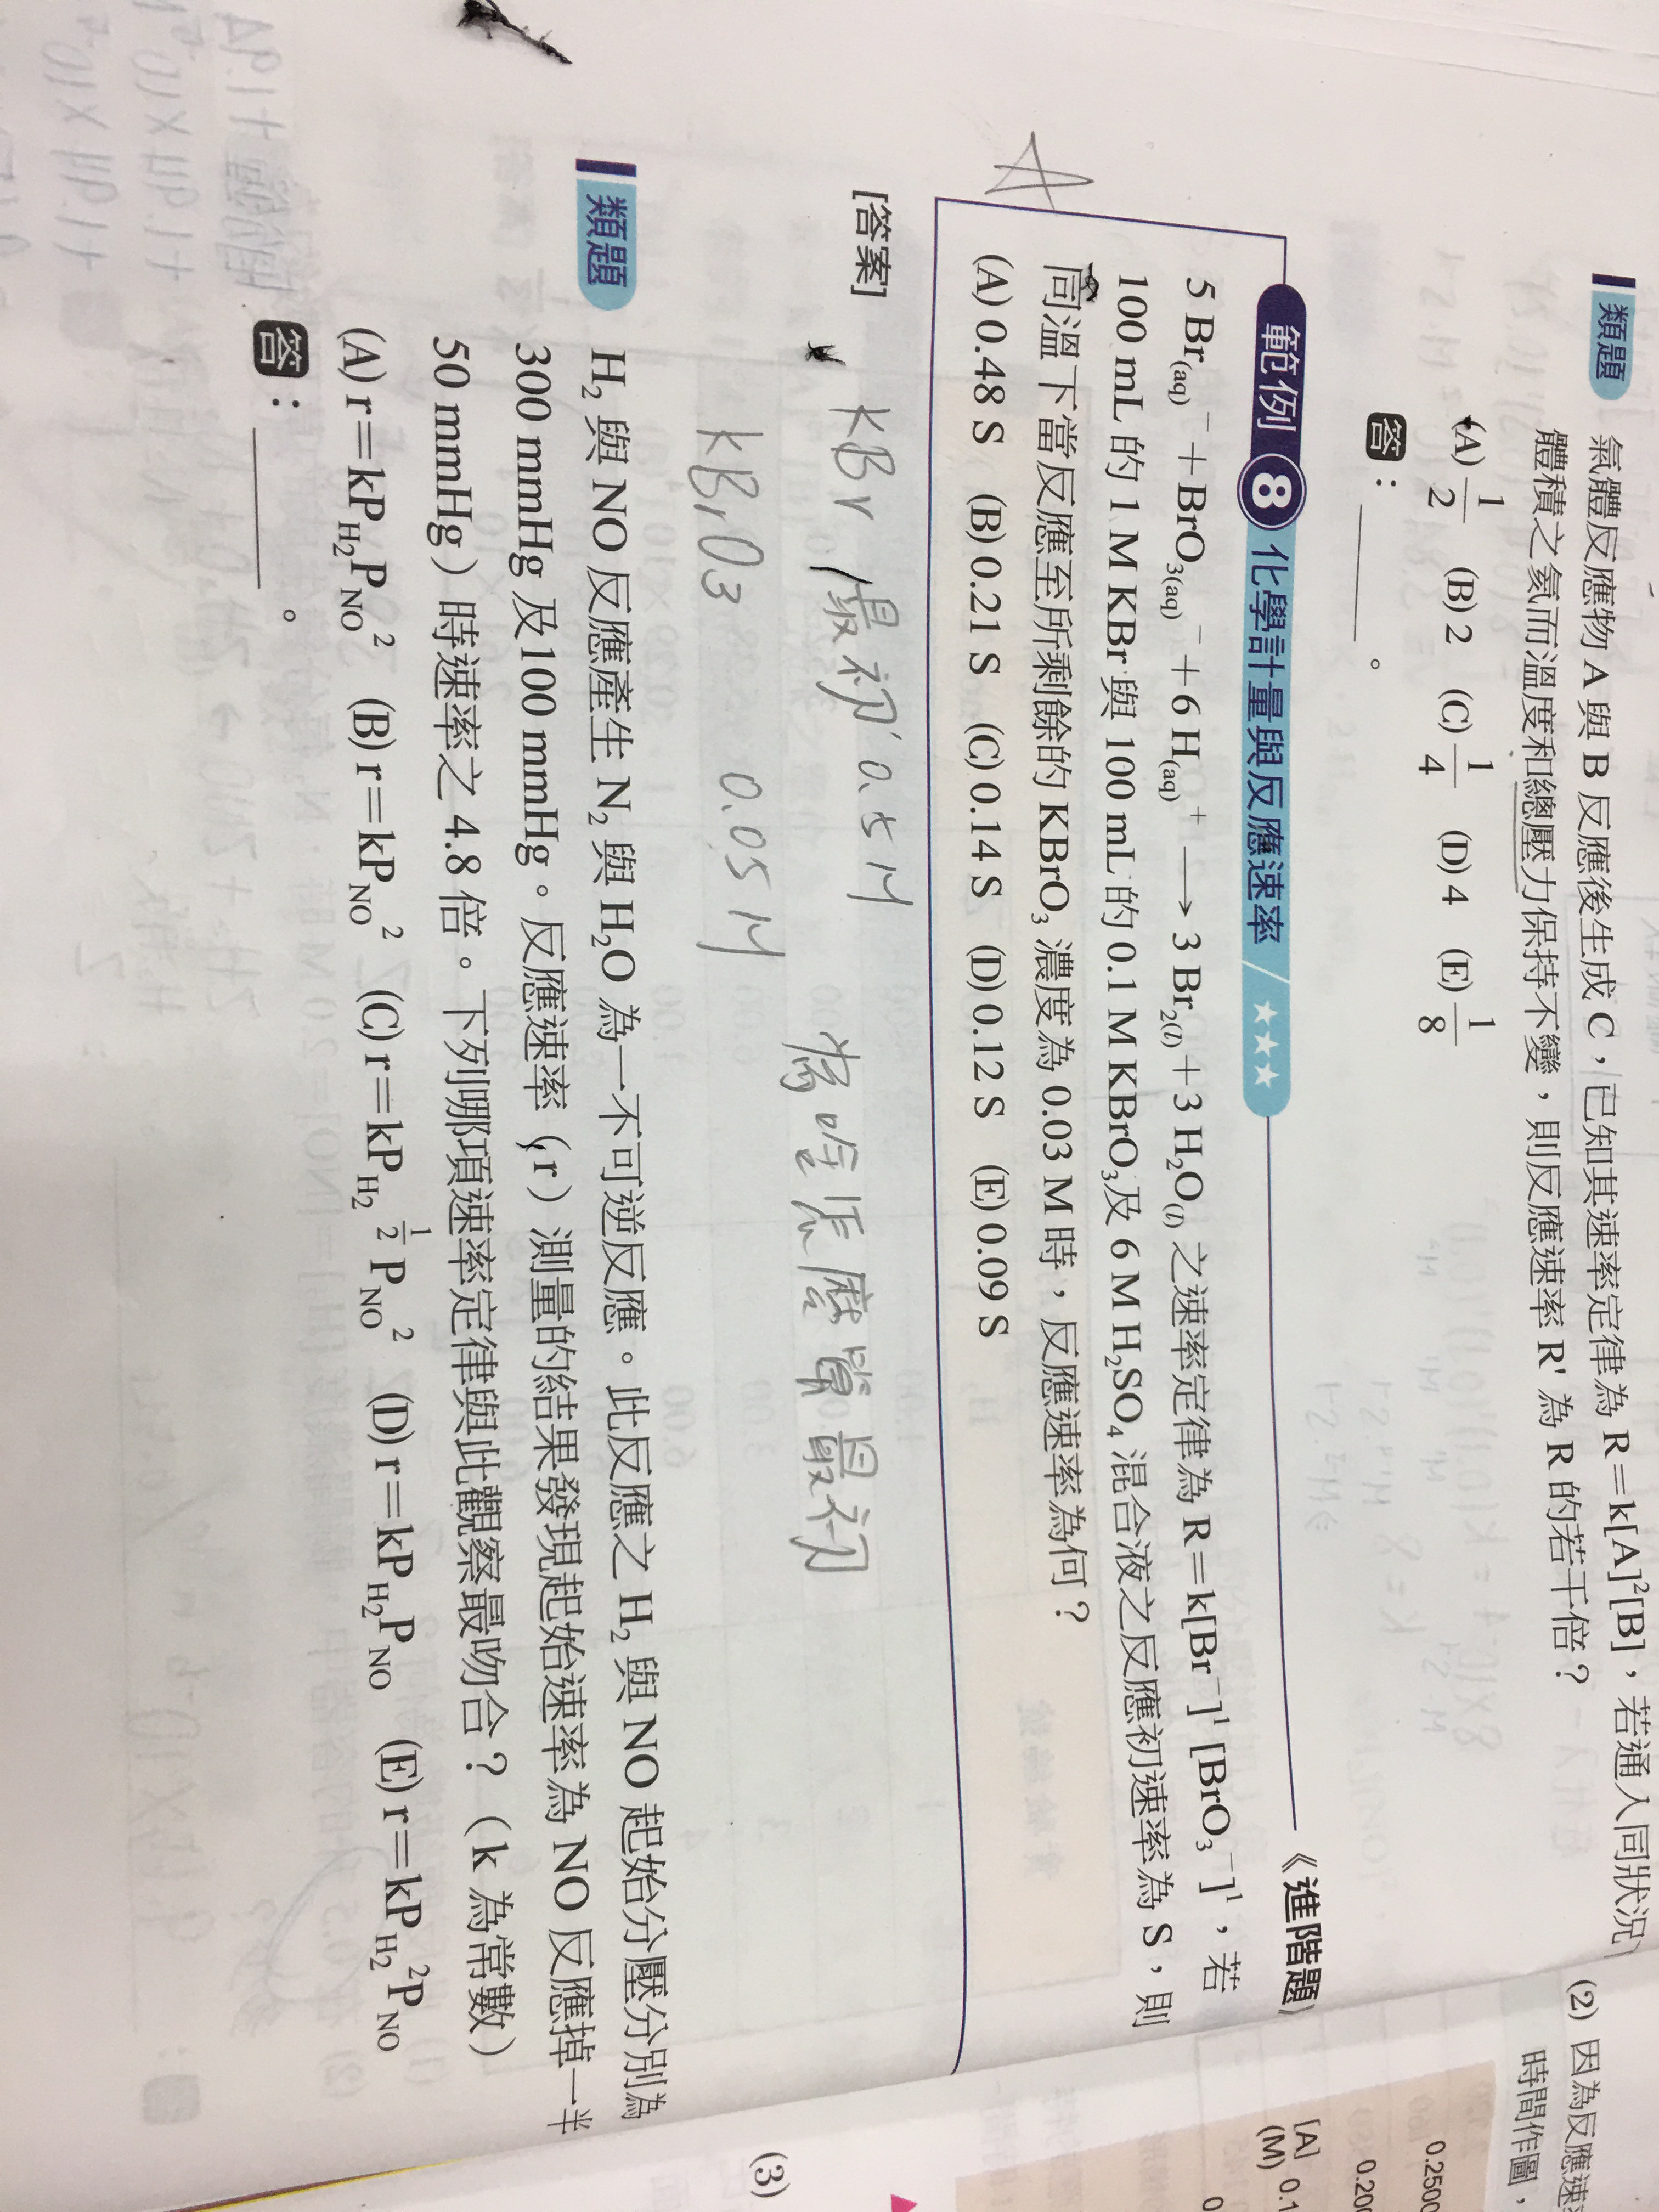 類題 氣體反應物 A 與 B 反應後生成 C，已知其速率定律為 R＝k[A]²[B]，若通入同狀況
體積之氦而溫度和總壓力保持不變，則反應速率 R' 為 R 的若干倍？
(A) 1/2 (B) 2 (C) 1/4 (D) 4 (E) 1/8
答：＿＿＿。
範例 8 化學計量與反應速率 ★★★ 《進階題》
5 Br(aq)⁻＋BrO₃(aq)⁻＋6 H(aq)⁺ ⟶ 3 Br₂(l)＋3 H₂O(l) 之速率定律為 R＝k[Br⁻]¹[BrO₃⁻]¹，若
100 mL 的 1 M KBr 與 100 mL 的 0.1 M KBrO₃及 6 M H₂SO₄ 混合液之反應初速率為 S，則
同溫下當反應至所剩餘的 KBrO₃ 濃度為 0.03 M 時，反應速率為何？
(A) 0.48 S (B) 0.21 S (C) 0.14 S (D) 0.12 S (E) 0.09 S
[答案]
KBr 最初 0.5 M
KBrO3 0.05 M
最初
類題 H₂ 與 NO 反應產生 N₂ 與 H₂O 為一不可逆反應。此反應之 H₂ 與 NO 起始分壓分別為
300 mmHg 及 100 mmHg。反應速率（r）測量的結果發現起始速率為 NO 反應掉一半
50 mmHg）時速率之 4.8 倍。下列哪項速率定律與此觀察最吻合？（k 為常數）
(A) r＝kP_H₂P_NO² (B) r＝kP_NO² (C) r＝kP_H₂^1/2 P_NO² (D) r＝kP_H₂P_NO (E) r＝kP_H₂²P_NO
答：＿＿＿。
(2) 因為反應速
時間作圖，
[A]
(M)
0.1
0.2500
0.200
(3)